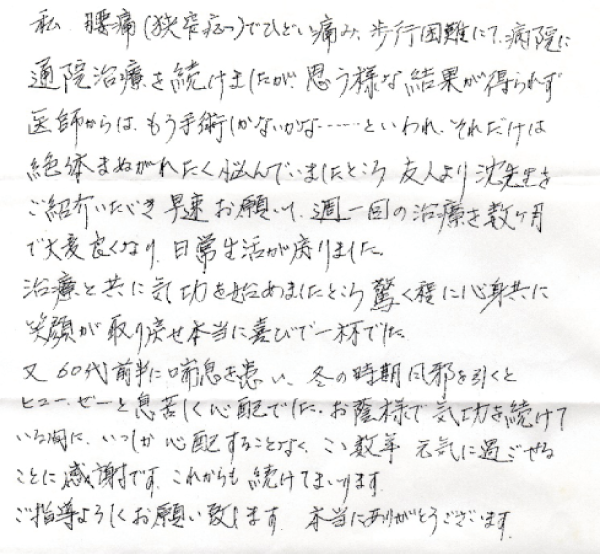 私 腰痛(狭窄症)でひどい痛み、歩行困難にて、病院に
通院治療を続けましたが、思う様な結果が得られず
医師からは、もう手術しかないかな……といわれ、それだけは
絶体まぬがれたく悩んでいましたところ 友人より沈先生を
ご紹介いただき 早速お願いし、週一回の治療を数ヶ月
で大変良くなり、日常生活が戻りました。
治療と共に気功を始めましたところ驚く程に心身共に
笑顔が取り戻せ本当に喜びで一杯でした。
又 60代前半に喘息を患い、冬の時期風邪を引くと
ヒューゼーと息苦しく心配でした。お蔭様で気功を続けて
いる間に、いつしか心配することなく、ここ数年 元気に過ごせる
ことに感謝です。これからも続けてまいります。
ご指導よろしくお願い致します。本当にありがとうございます。